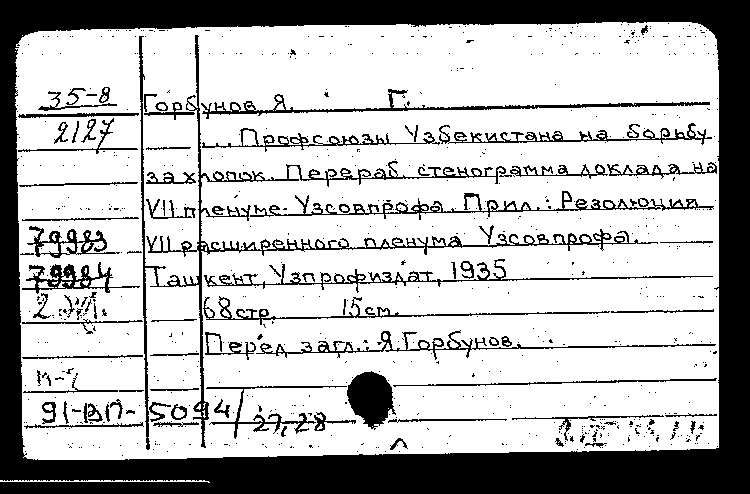 35-8 Горбунов, Я. Г.
2127 ... Профсоюзы Узбекистана на борьбу
за хлопок. Перераб. стенограмма доклада на
VII пленуме Узсовпрофа. Прил.: Резолюции
79983 VII расширенного пленума Узсовпрофа.
79984 Ташкент, Узпрофиздат, 1935
68 стр. 15 см.
Перед загл.: Я. Горбунов.
91-ВП-5094/27,28